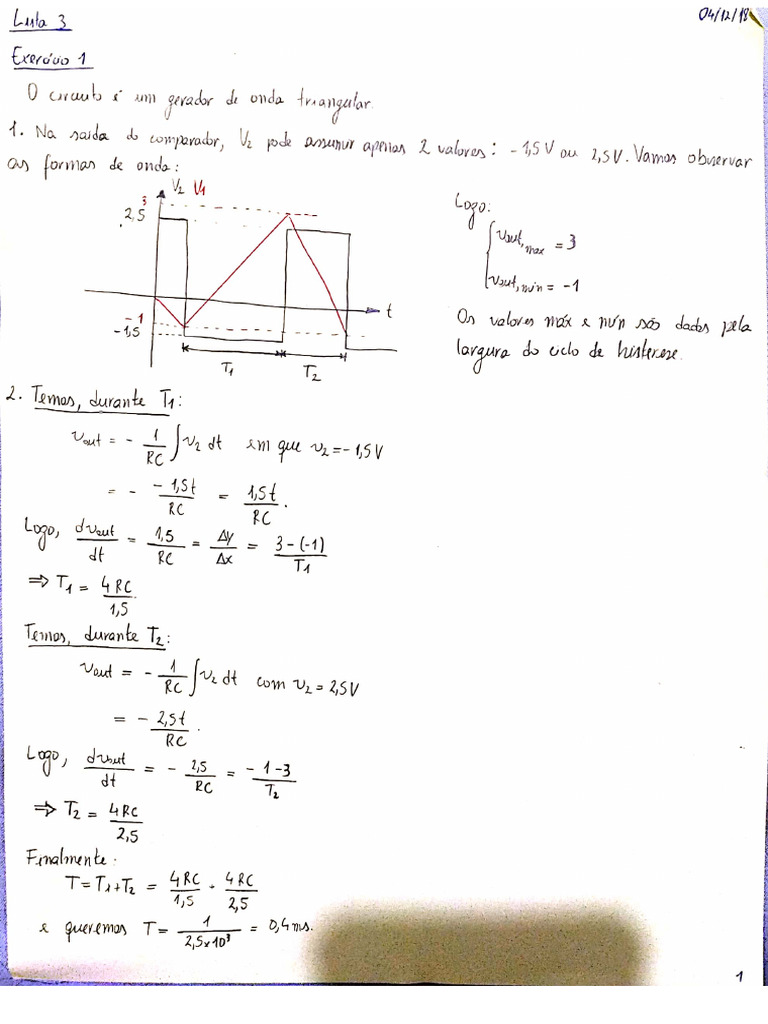 Lista 3
04/12/18
Exercício 1
O circuito é um gerador de onda triangular.
1. Na saída do comparador, V2 pode assumir apenas 2 valores: -1,5V ou 2,5V. Vamos observar
as formas de onda:
V2 V1
3
2,5
-1
-1,5
t
T1
T2
Logo:
vout,max = 3
vout,mín = -1
Os valores máx e mín são dados pela
largura do ciclo de histerese.
2. Temos, durante T1:
vout = - 1/RC ∫ v2 dt em que v2 = -1,5V
= - -1,5t/RC = 1,5t/RC.
Logo, dvout/dt = 1,5/RC = Δy/Δx = 3-(-1)/T1
⇒ T1 = 4RC/1,5.
Temos, durante T2:
vout = - 1/RC ∫ v2 dt com v2 = 2,5V
= - 2,5t/RC.
Logo, dvout/dt = - 2,5/RC = -1-3/T2
⇒ T2 = 4RC/2,5
Finalmente:
T = T1+T2 = 4RC/1,5 + 4RC/2,5
e queremos T = 1/2,5x10³ = 0,4ms.
1